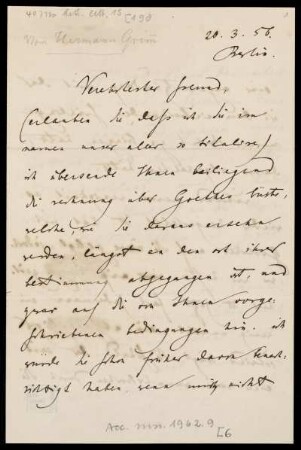 Von Hermann Grimm
[190
20. 3. 56.
Berlin.
Verehrtester Freund,
(erlauben Sie daß ich Sie im
namen unser aller so titulire)
ich übersende Ihnen beiliegend
die rechnung über Goethes büste,
welche, wie Sie daraus ersehn
werden, längst an den ort ihrer
bestimmung abgegangen ist, und
zwar auf die von Ihnen vorge-
schriebenen bedingungen hin. ich
würde Sie schon früher davon benach-
richtigt haben, wenn mich nicht
Acc. mss. 1962. 9
[6